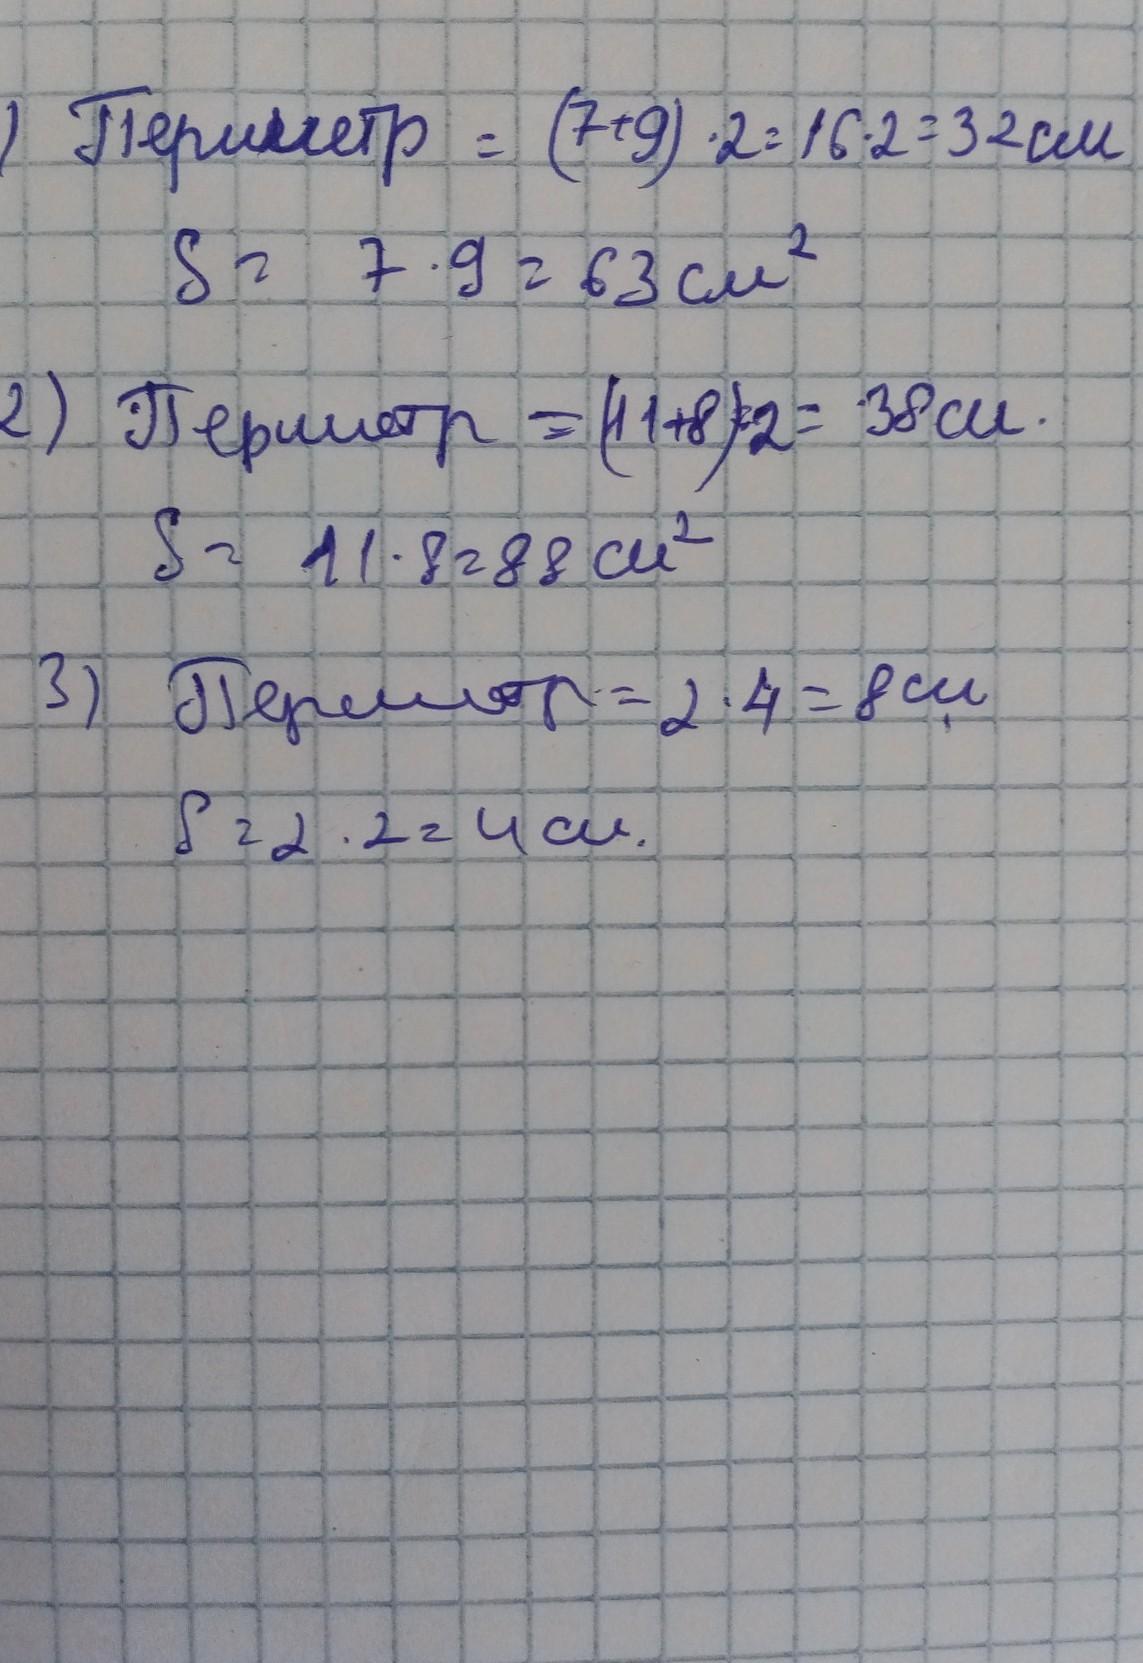 ) Периметр = (7+9)·2=16·2=32см
S= 7·9=63см²
2) Периметр =(11+8)·2= 38см.
S= 11·8=88см²
3) Периметр=2·4=8см
S=2·2=4см.